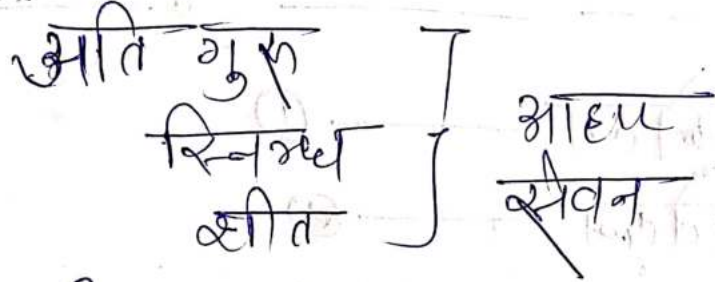 अति गुरु
स्निग्ध
शीत
आहार
सेवन